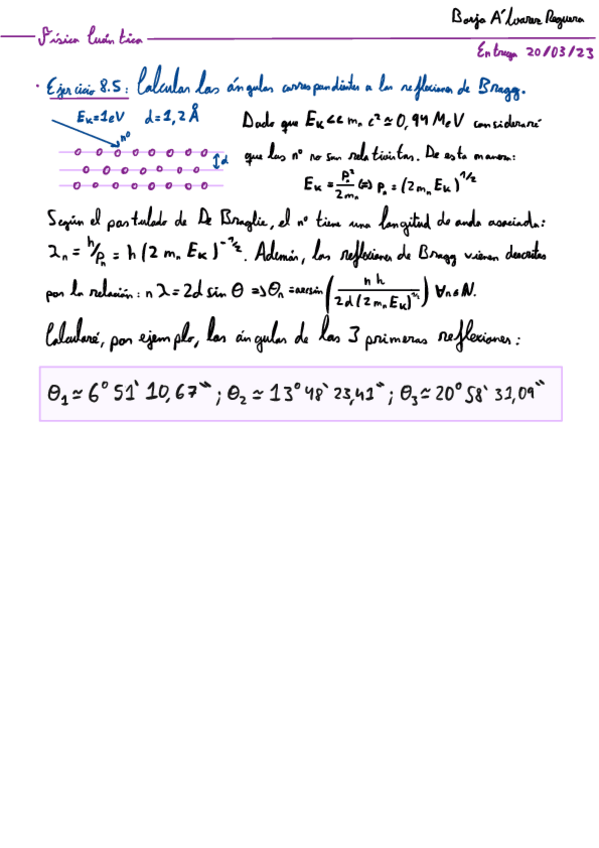 Borja Álvarez Reguera
Física Cuántica
Entrega 20/03/23
· Ejercicio 8.5: Calcular los ángulos correspondientes a las reflexiones de Bragg.
Eₖ=1eV d=1,2 Å
n⁰
d
Dado que Eₖ << mₙ c² ≃ 0,94 MeV consideraré
que los n⁰ no son relativistas. De esta manera:
Eₖ = pₙ²/2mₙ (=) pₙ = (2 mₙ Eₖ)^1/2
Según el postulado de De Broglie, el n⁰ tiene una longitud de onda asociada:
λₙ = h/pₙ = h (2 mₙ Eₖ)^-1/2. Además, las reflexiones de Bragg vienen descritas
por la relación: n λ = 2d sin θ => θₙ = arcsin (n h / 2d (2 mₙ Eₖ)^1/2) ∀n∈N.
Calcularé, por ejemplo, los ángulos de las 3 primeras reflexiones:
θ₁ ≃ 6° 51' 10,67"; θ₂ ≃ 13° 48' 23,41"; θ₃ ≃ 20° 58' 31,09"